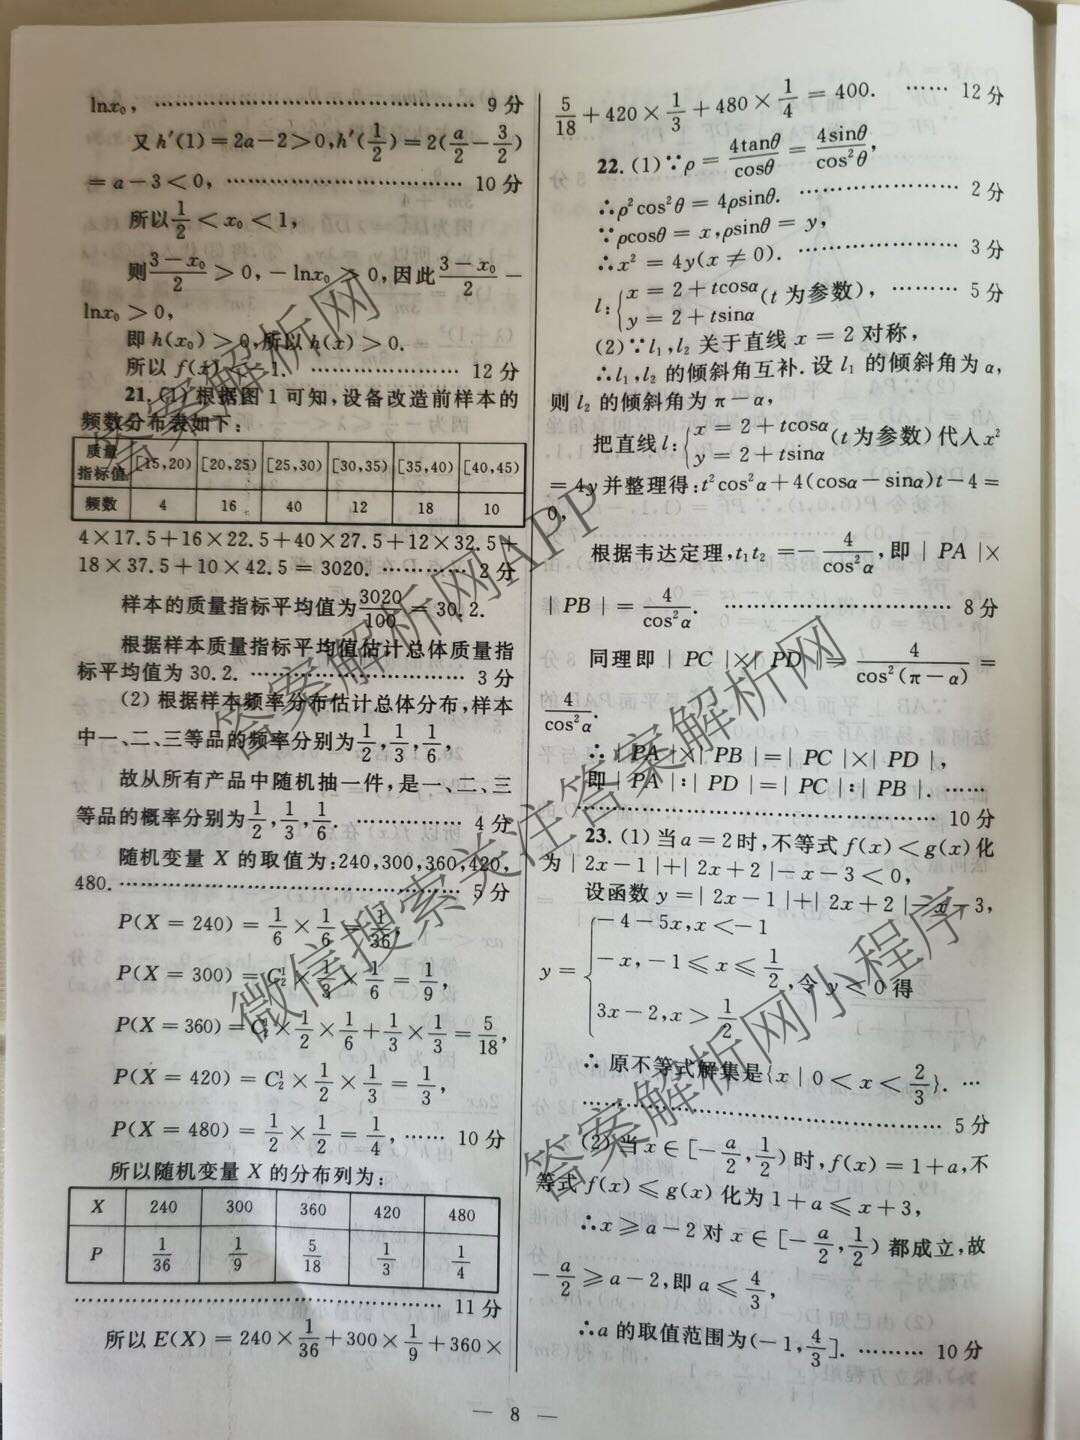 lnx₀, …… 9分
又h′(1)=2a−2>0,h′(1/2)=2(a/2−3/2)
=a−3<0, …… 10分
所以1/2<x₀<1,
则(3−x₀)/2>0,−lnx₀>0,因此(3−x₀)/2−
lnx₀>0,
即h(x₀)>0,所以h(x)>0.
所以f(x) −1. …… 12分
21.(1)根据图1可知,设备改造前样本的
频数分布表如下:
质量指标值 [15,20) [20,25) [25,30) [30,35) [35,40) [40,45)
频数 4 16 40 12 18 10
4×17.5+16×22.5+40×27.5+12×32.5+
18×37.5+10×42.5=3020. …… 2分
样本的质量指标平均值为3020/100=30.2.
根据样本质量指标平均值估计总体质量指
标平均值为30.2. …… 3分
(2)根据样本频率分布估计总体分布,样本
中一、二、三等品的频率分别为1/2,1/3,1/6,
故从所有产品中随机抽一件,是一、二、三
等品的概率分别为1/2,1/3,1/6. …… 4分
随机变量X的取值为:240,300,360,420,
480. …… 5分
P(X=240)=1/6×1/6=1/36,
P(X=300)=C₂¹×1/3×1/6=1/9,
P(X=360)=C₂¹×1/2×1/6+1/3×1/3=5/18,
P(X=420)=C₂¹×1/2×1/3=1/3,
P(X=480)=1/2×1/2=1/4, …… 10分
所以随机变量X的分布列为:
X 240 300 360 420 480
P 1/36 1/9 5/18 1/3 1/4
…… 11分
所以E(X)=240×1/36+300×1/9+360×
5/18+420×1/3+480×1/4=400. …… 12分
22.(1)∵ρ=4tanθ/cosθ=4sinθ/cos²θ,
∴ρ²cos²θ=4ρsinθ. …… 2分
∵ρcosθ=x,ρsinθ=y,
∴x²=4y(x≠0). …… 3分
l:{x=2+tcosα
y=2+tsinα(t为参数), …… 5分
(2)∵l₁,l₂关于直线x=2对称,
∴l₁,l₂的倾斜角互补.设l₁的倾斜角为α,
则l₂的倾斜角为π−α,
把直线l:{x=2+tcosα
y=2+tsinα(t为参数)代入x²
=4y并整理得:t²cos²α+4(cosα−sinα)t−4=
0,
根据韦达定理,t₁t₂=−4/cos²α,即|PA|×
|PB|=4/cos²α. …… 8分
同理即|PC|×|PD|=4/cos²(π−α)=
4/cos²α.
∴|PA|×|PB|=|PC|×|PD|,
即|PA|:|PD|=|PC|:|PB|. ……
…… 10分
23.(1)当a=2时,不等式f(x)<g(x)化
为|2x−1|+|2x+2|−x−3<0,
设函数y=|2x−1|+|2x+2|−x−3,
y={−4−5x,x<−1
−x,−1≤x≤1/2,令y<0得
3x−2,x>1/2
∴原不等式解集是{x|0<x<2/3}. …
…… 5分
(2)当x∈[−a/2,1/2)时,f(x)=1+a,不
等式f(x)≤g(x)化为1+a≤x+3,
∴x≥a−2对x∈[−a/2,1/2)都成立,故
−a/2≥a−2,即a≤4/3,
∴a的取值范围为(−1,4/3]. …… 10分
— 8 —
答案解析网
答案解析网APP
微信搜索关注答案解析网
答案解析网小程序